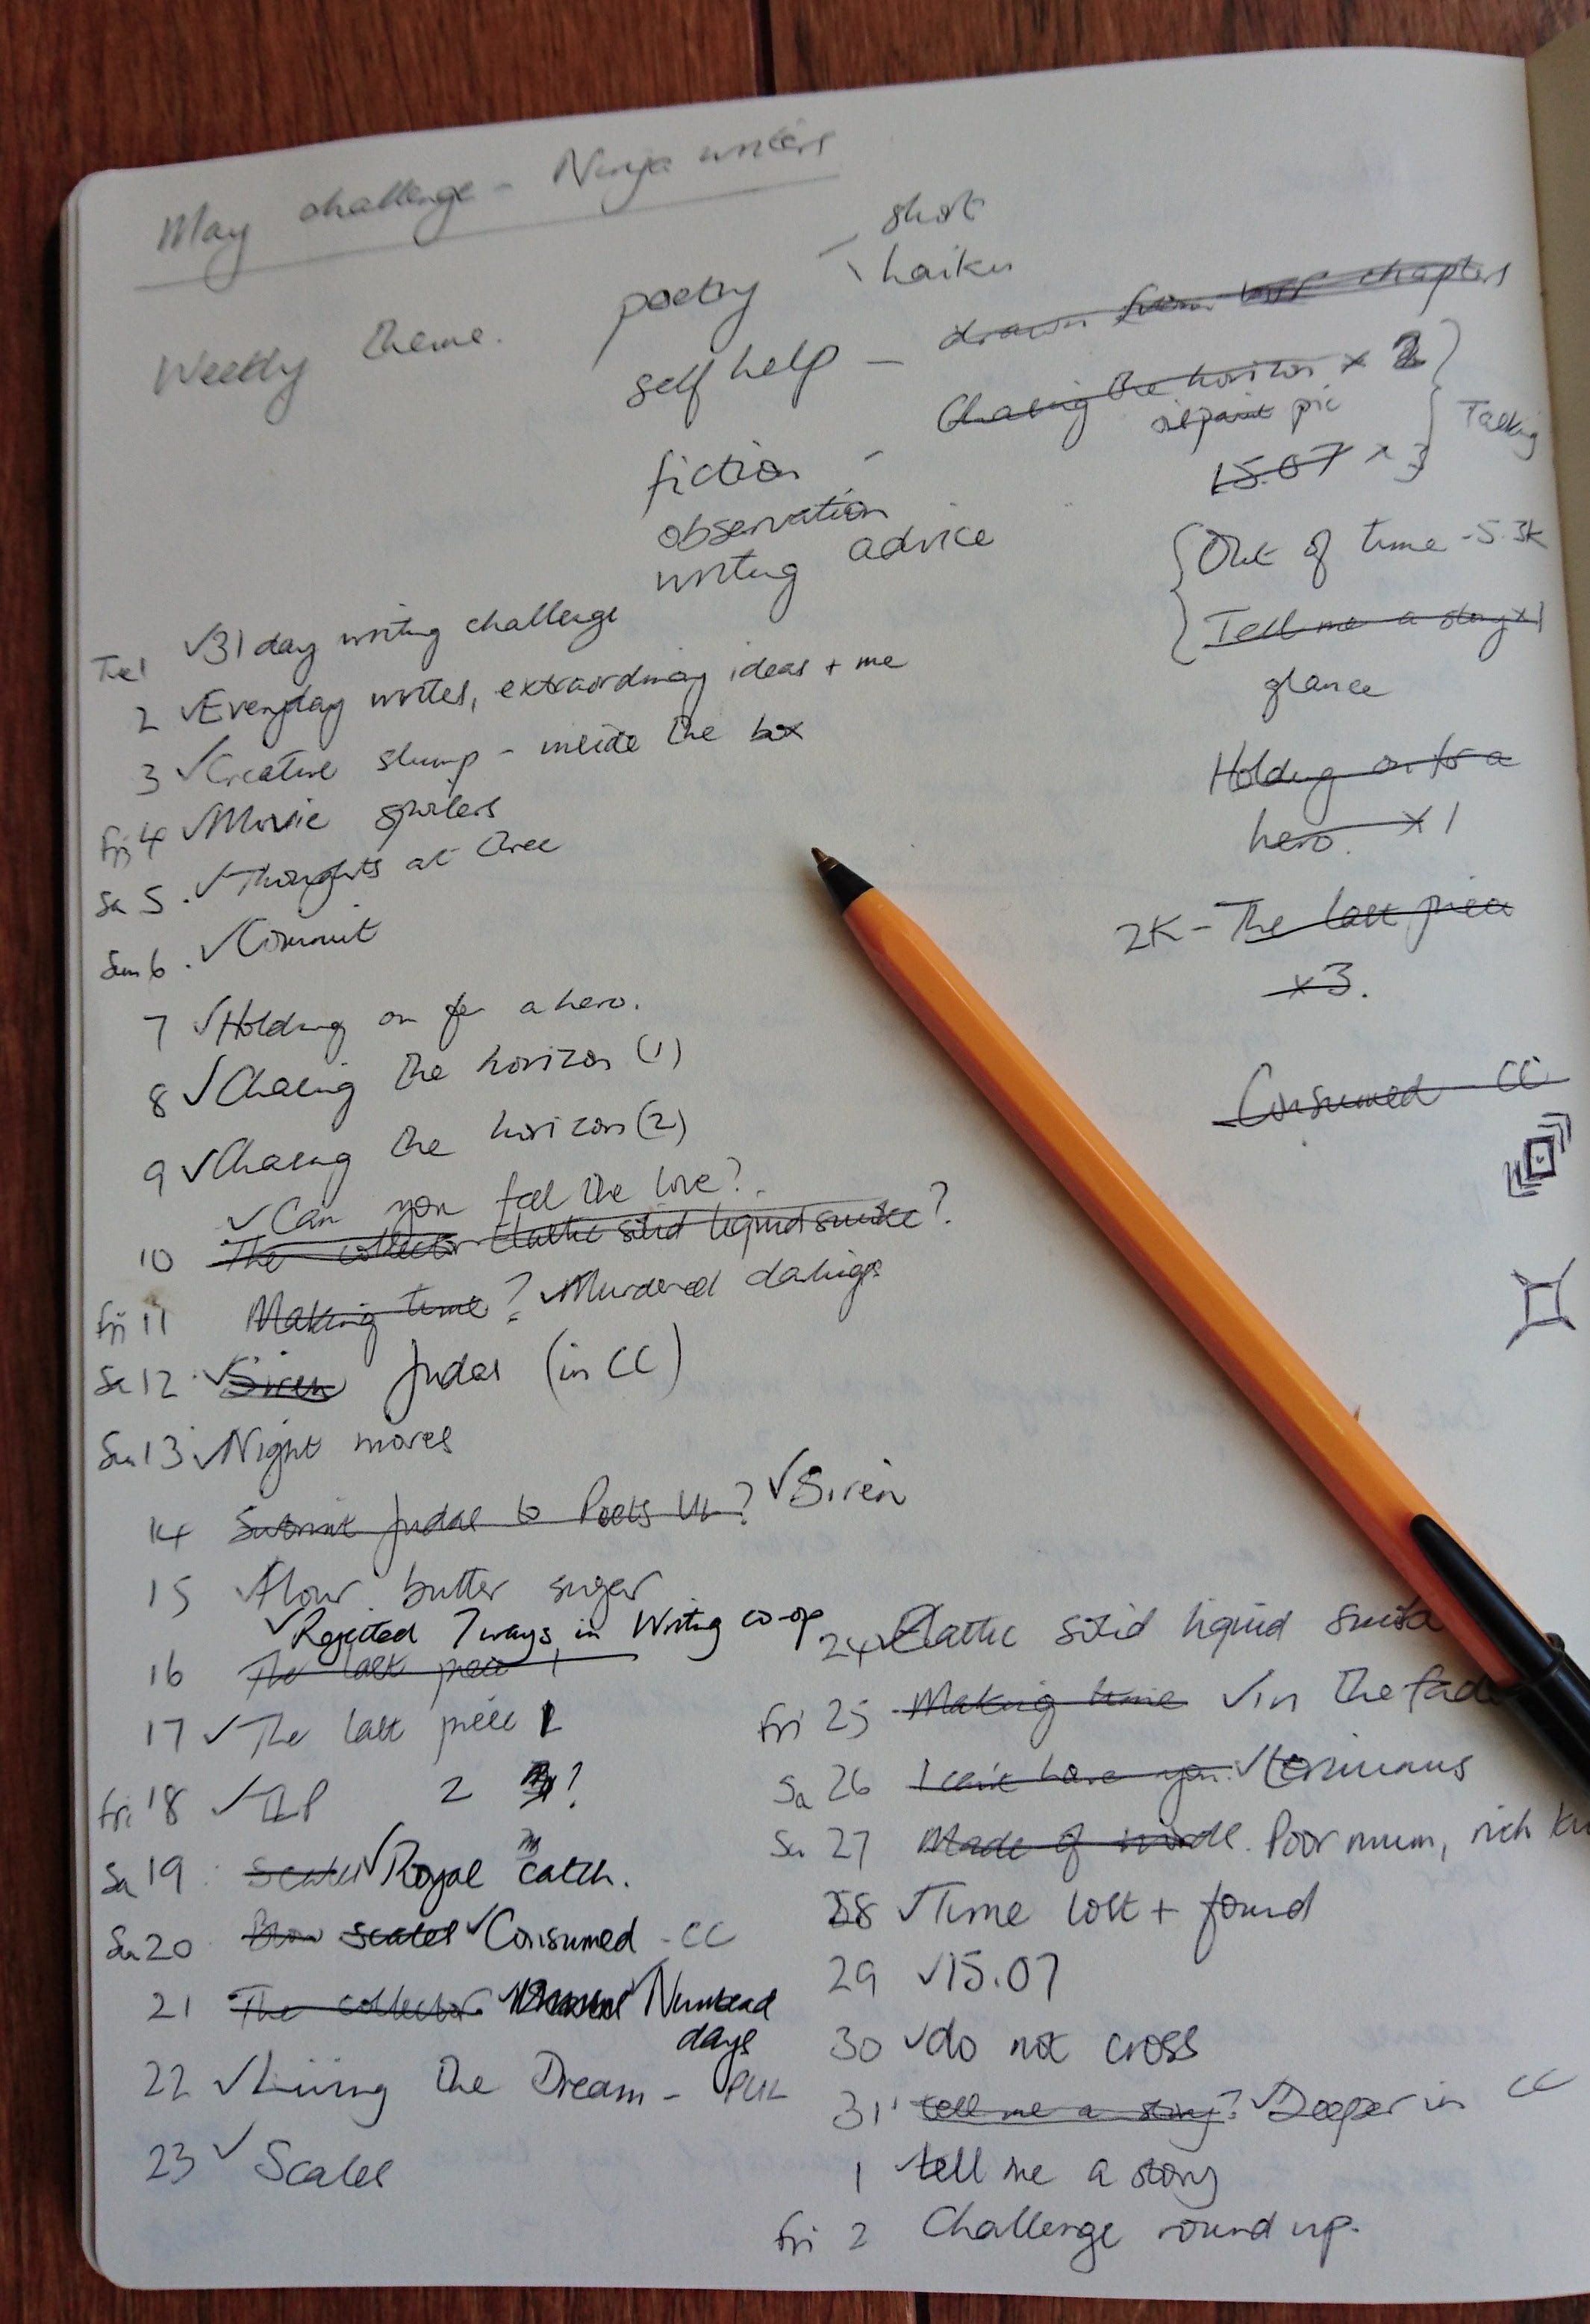 May challenge - Ninja writers
Weekly theme.
poetry
shot
haiku
self help - drawn from chapters
Chasing the horizon x 2
pic
fiction - 15.07 x 3
Talking
observation
writing advice
Out of time - 5.3K
Tell me a story x1
glance
Holding on for a
hero. x1
2K - The last piece
x3.
Consumed CC
Tue 1 ✓31 day writing challenge
2 ✓Everyday writes, extraordinary ideas + me
3 ✓Creative slump - inside the box
Fri 4 ✓Movie spoilers
Sa 5. ✓Thoughts at three
Sun 6. ✓Commit
7 ✓Holding on for a hero.
8 ✓Chasing the horizon (1)
9 ✓Chasing the horizon (2)
✓Can you feel the love?
10 The collector Elastic solid liquid smile?
Fri 11 Making time? ✓Murdered darlings
Sa 12 ✓Siren Judas (in CC)
Sun 13 ✓Night moves
14 Submit Judas to Poets UL? ✓Siren
15 ✓Flour butter sugar
✓Rejected 7 ways in Writing co-op
16 The last piece 1
17 ✓The last piece 1
Fri 18 ✓TLP 2 ?
Sa 19 Scales ✓Royal catch.
Su 20 Scales ✓Consumed - CC
21 The collector ✓Numbered
days
22 ✓Living the Dream - PUL
23 ✓Scales
24 ✓Elastic solid liquid
Fri 25 Making time ✓in the fade
Sa 26 I can't have you. ✓terminus
Su 27 Made of Poor mum, rich
28 ✓Time lost + found
29 ✓15.07
30 ✓do not cross
31 tell me a story? ✓Deeper in CC
1 ✓tell me a story
Fri 2 Challenge round up.